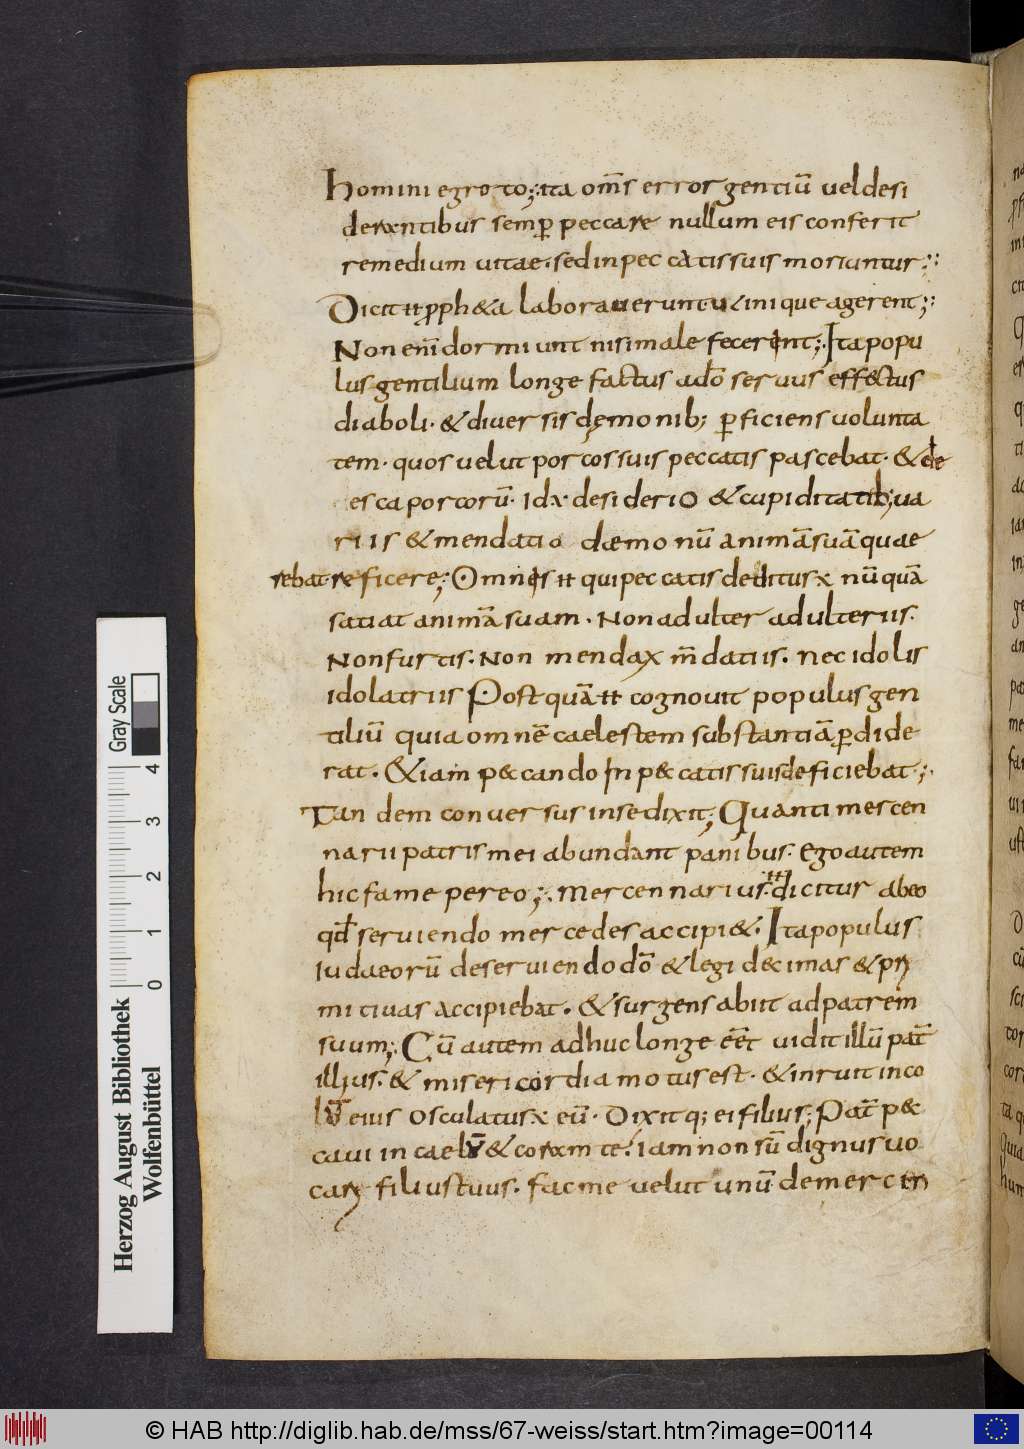 Homini egroto; ita om̄s error gentiū vel desi
derantibus semp̱ peccare nullum eis conferit
remedium vitae. sed in peccatis suis moriuntur;
Dicit p̱ph&a laboraverunt ut inique agerent;
Non enī dormiunt nisi male fecerint; Ita popu
lus gentilium longe factus a dō servus eff&ctus
diaboli. & diversis dęmonib; p̱ficiens volunta
tem. quos velut porcos suis peccatis pascebat. & de
esca porcorū. id÷ desiderio & cupiditatib; va
riis & mendatio dæmonū animā suā quae
rebat reficere; Omnis qui peccatis deditus ÷ nūquā
satiat animā suam. Non adulter adulteriis.
Non furtis. Non mendax mdatiis. nec idolis
idolatriis Postquā cognovit populus gen
tiliū quia omnē caelestem substantiā p̱dide
rat. &iam p&cando in p&catis suis deficiebat;
Tandem conversus in se dixit; Quanti mercen
narii patris mei abundant panibus. ego autem
hic fame pereo; Mercennarius dicitur ab eo
qđ serviendo mercedes accipi&. Ita populus
iudaeorū deserviendo dō & legi decimas & pri
mitivas accipiebat. & surgens abiit ad patrem
suum; Cū autem adhuc longe eēt vidit illū pat̄
illius. & misericordia motus est. & inruit in co
lū eius osculatus ÷ eū. Dixit q; ei filius; Pat̄ p&
cavi in caelū & coram te. iam non sū dignus vo
cari filius tuus. fac me velut unū de mercen
Gray Scale
0 1 2 3 4
Herzog August Bibliothek
Wolfenbüttel
© HAB http://diglib.hab.de/mss/67-weiss/start.htm?image=00114